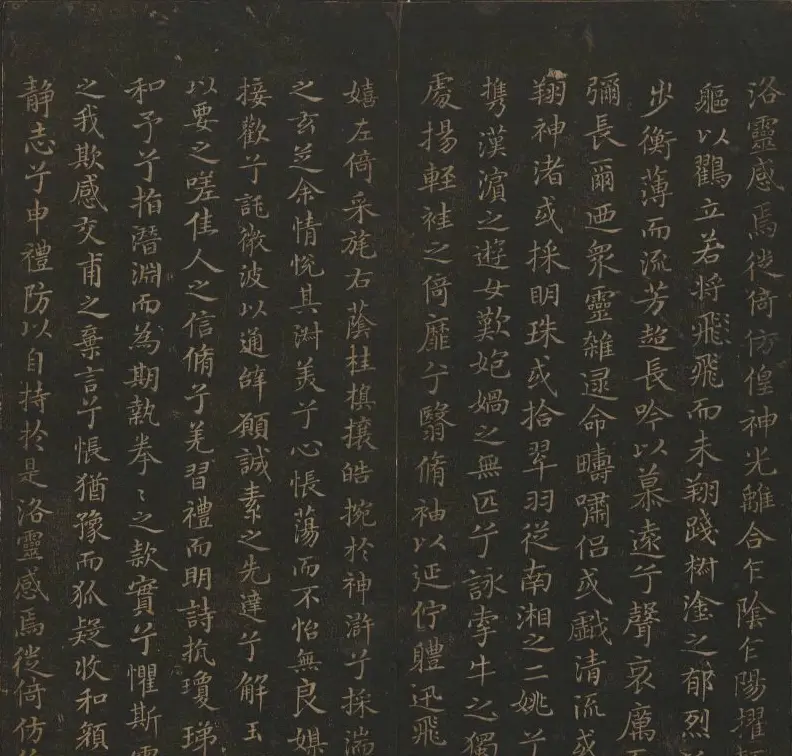 洛靈感焉徙倚仿偟神光離合乍陰乍陽擢
軀以鸖立若將飛飛而未翔踐椒塗之郁烈
步衡薄而流芳超長吟以慕遠兮聲哀厲
彌長爾迺衆靈雜遝命疇嘯侶或戲清流或
翔神渚或採明珠或拾翠羽從南湘之二姚兮
攜漢濱之遊女歎媧之無匹兮詠牽牛之獨
處揚輕袿之倚靡兮翳脩袖以延佇體迅飛
嬉左倚采旄右蔭桂旗攘皓捥於神滸兮採湍
之玄芝余情悅其淑美兮心悵蕩而不怡無良媒
接歡兮託微波以通辭願誠素之先達兮解玉
以要之嗟佳人之信脩兮羌習禮而明詩抗瓊珶
和予兮指潛淵而為期執拳〻之款實兮懼斯
之我欺感交甫之棄言兮悵猶豫而狐疑收和顏
静志兮申禮防以自持於是洛靈感焉徙倚仿